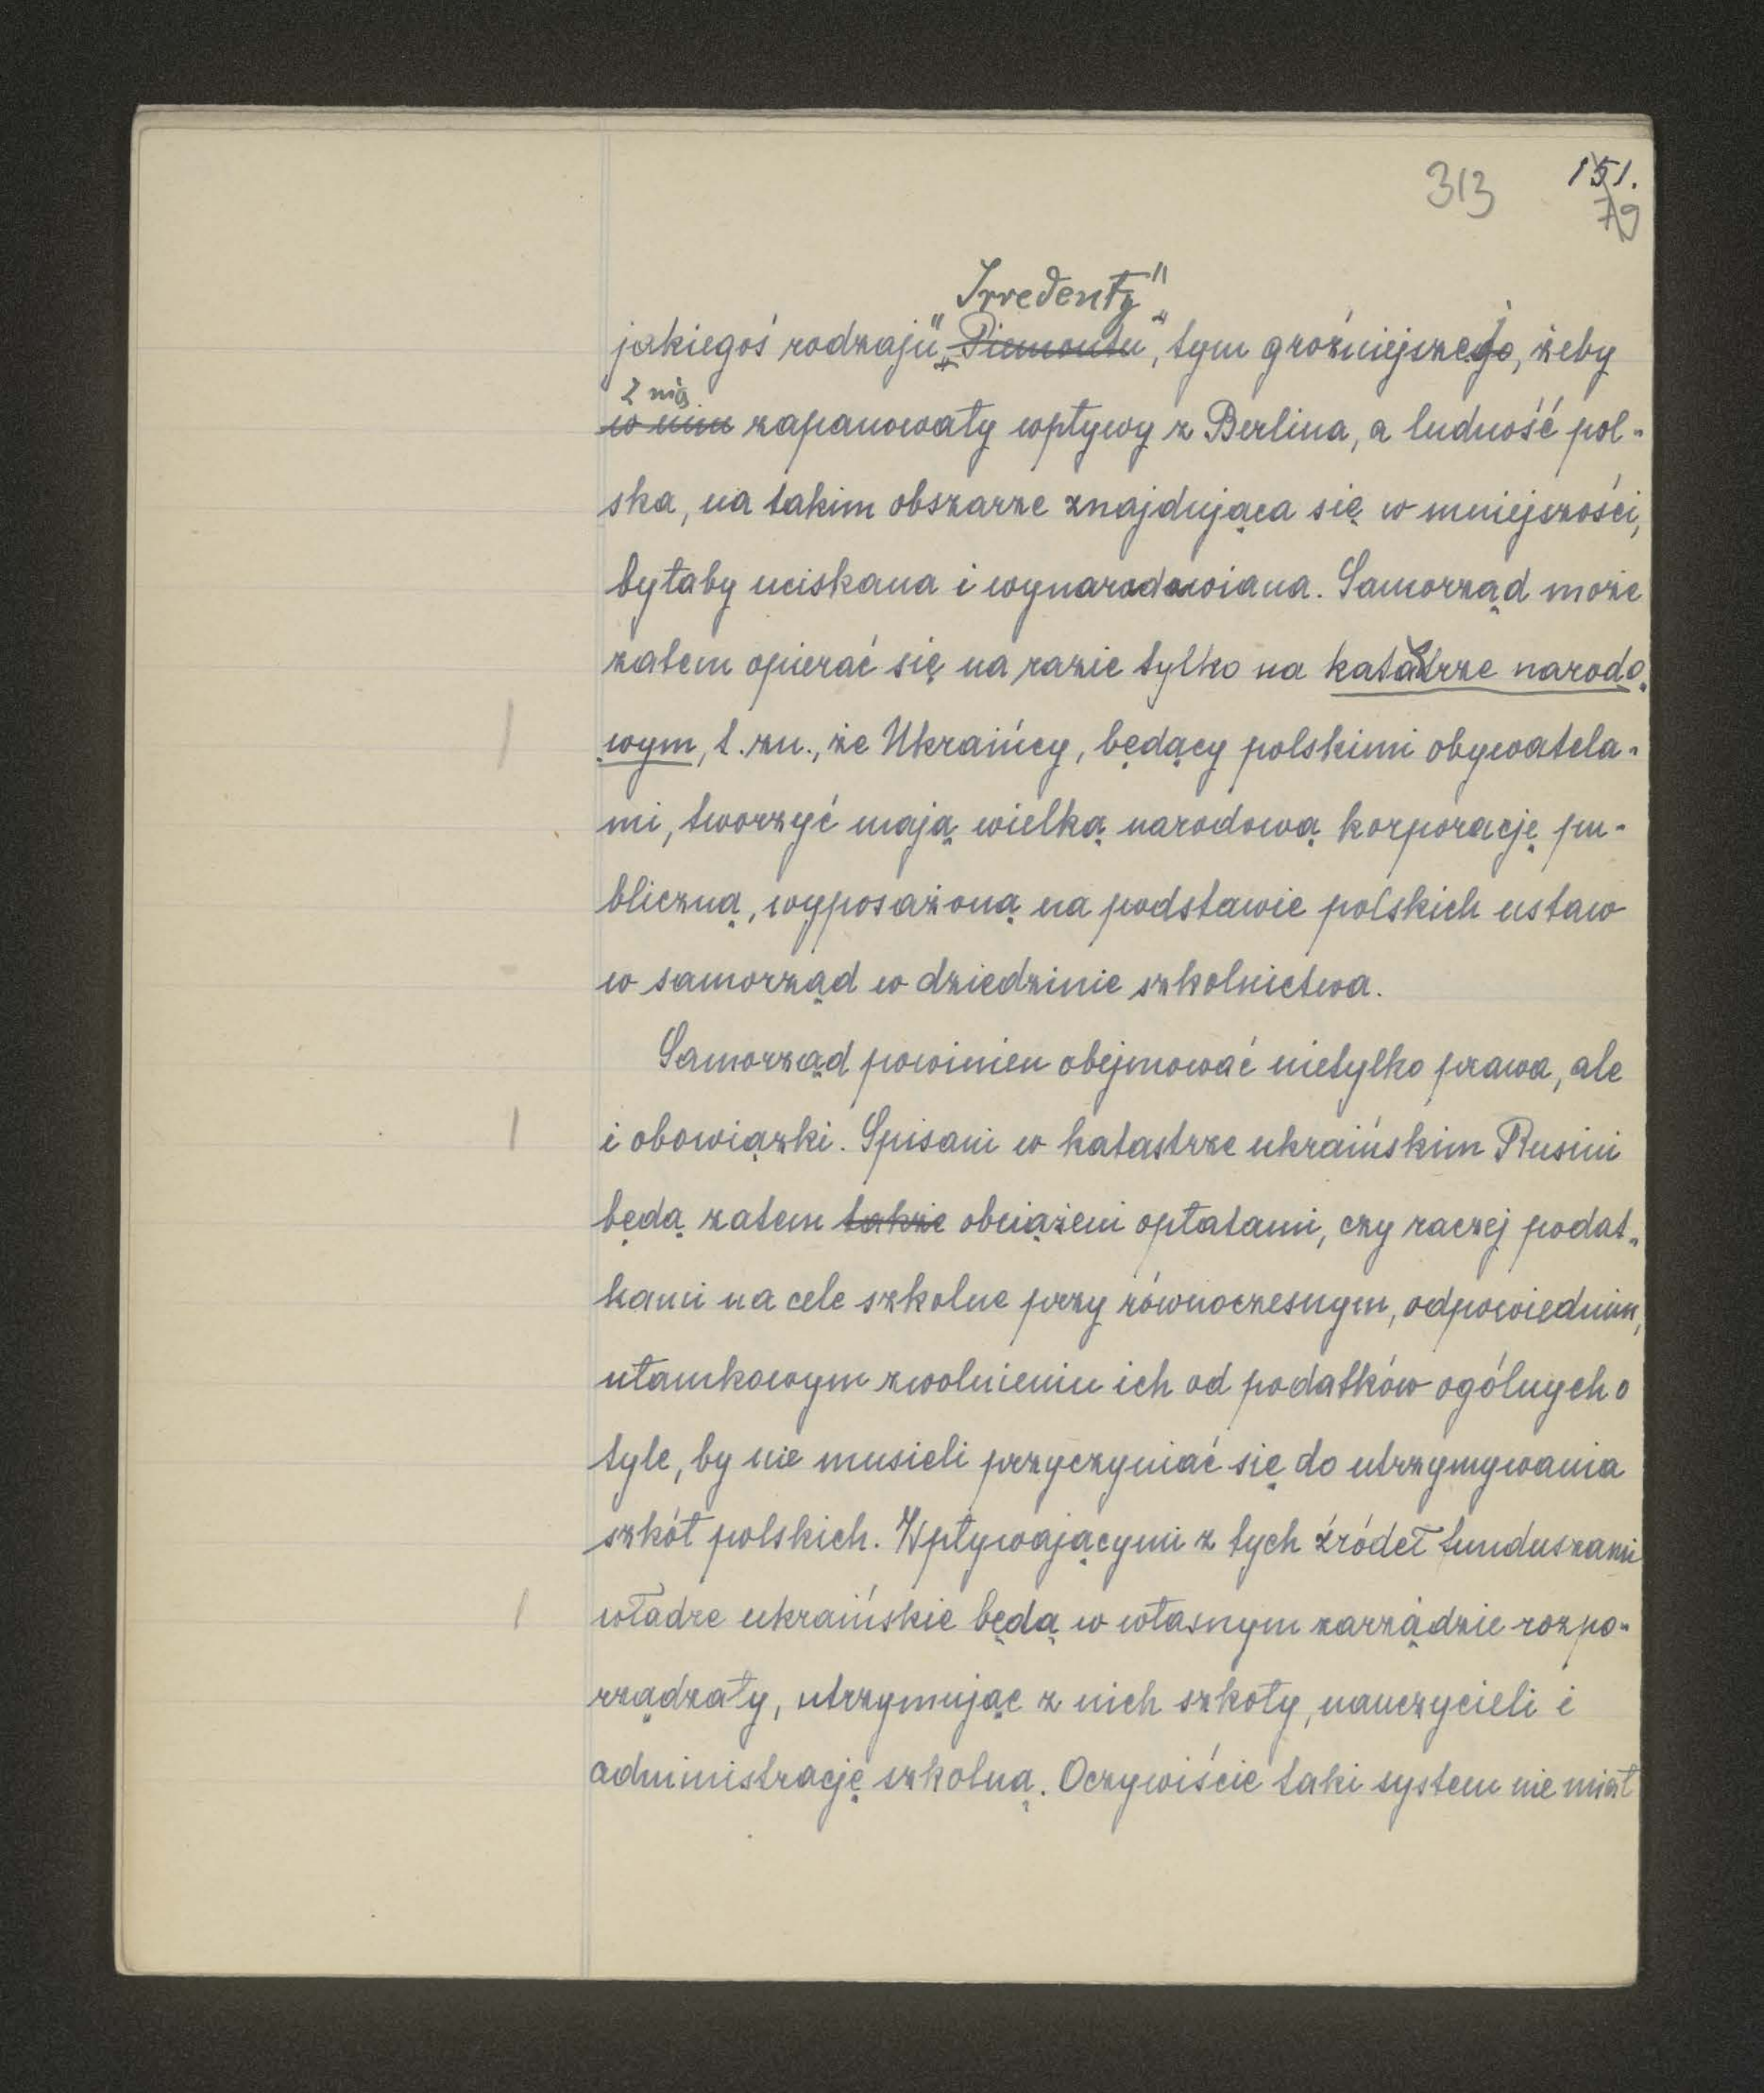 313 151.
79
Irredenty"
jakiegoś rodzaju „Piemontu", tym groźniejszej, żeby
z nią
w nim zapanowały wpływy z Berlina, a ludność pol-
ska, na takim obszarze znajdująca się w mniejszości,
byłaby uciskana i wynarodowiana. Samorząd może
zatem opierać się na razie tylko na katastrze narodo-
wym, t.zn., że Ukraińcy, będący polskimi obywatela-
mi, tworzyć mają wielką narodową korporację pu-
bliczną, wyposażoną na podstawie polskich ustaw
w samorząd w dziedzinie szkolnictwa.
Samorząd powinien obejmować nietylko prawa, ale
i obowiązki. Spisani w katastrze ukraińskim Rusini
będą zatem także obciążeni opłatami, czy raczej podat-
kami na cele szkolne przy równoczesnym, odpowiednim,
ułamkowym zwolnieniu ich od podatków ogólnych o
tyle, by nie musieli przyczyniać się do utrzymywania
szkół polskich. Wpływającymi z tych źródeł funduszami
władze ukraińskie będą w własnym zarządzie rozpo-
rządzały, utrzymując z nich szkoły, nauczycieli i
administrację szkolną. Oczywiście taki system nie miał